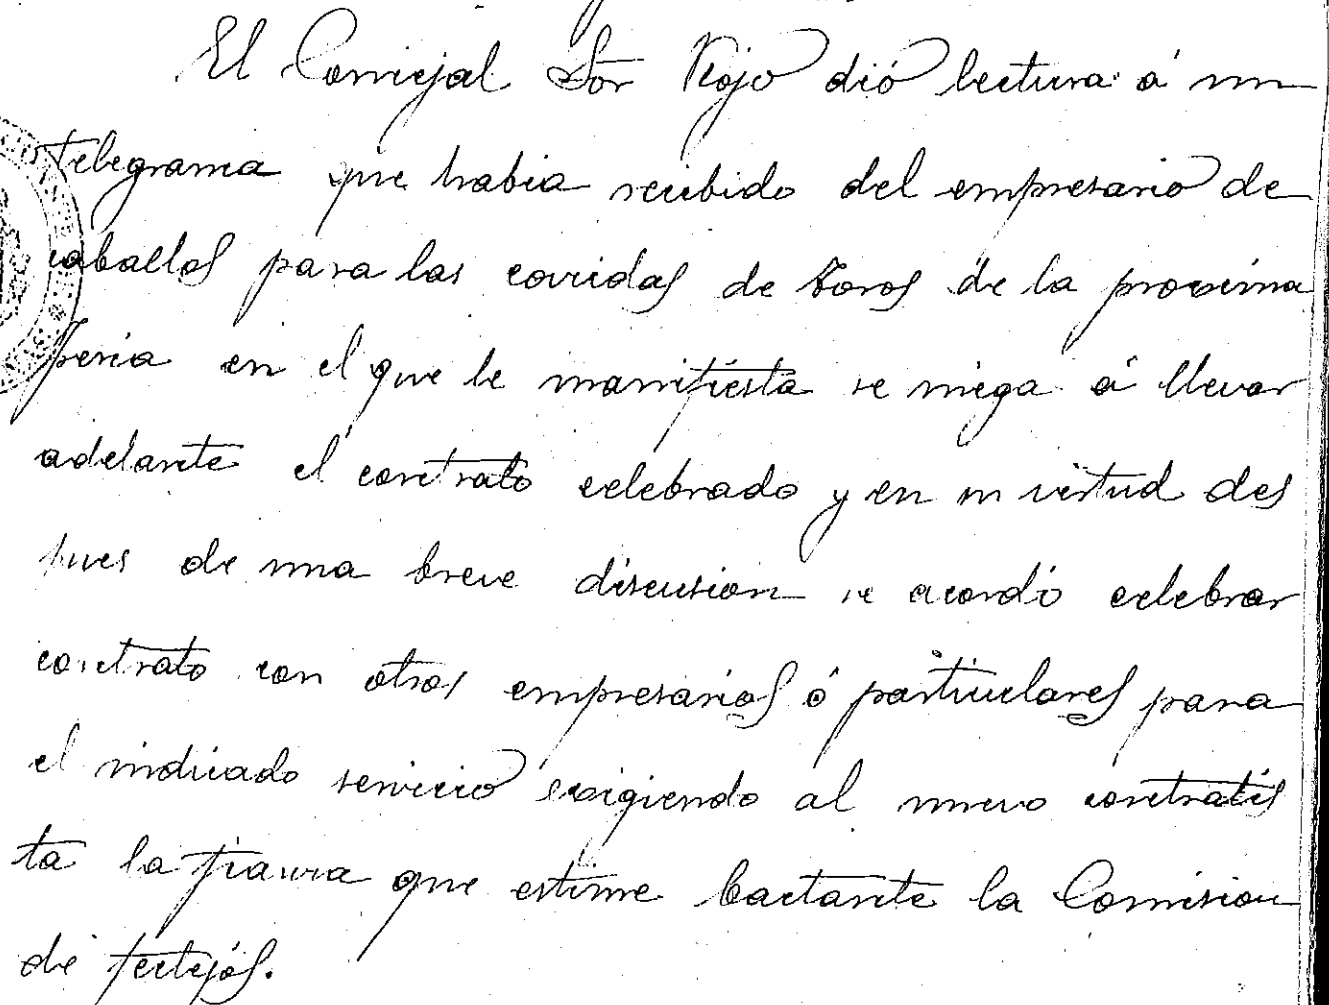 El Concejal Sor Rojo dió lectura á un
telegrama que habia recibido del empresario de
caballos para las corridas de toros de la proxima
feria en el que le manifiesta se niega á llevar
adelante el contrato celebrado y en su virtud des
pues de una breve discusion se acordó celebrar
contrato con otros empresarios ó particulares para
el indicado servicio exigiendo al nuevo contratis
ta la fianza que estime bastante la Comision
de festejos.